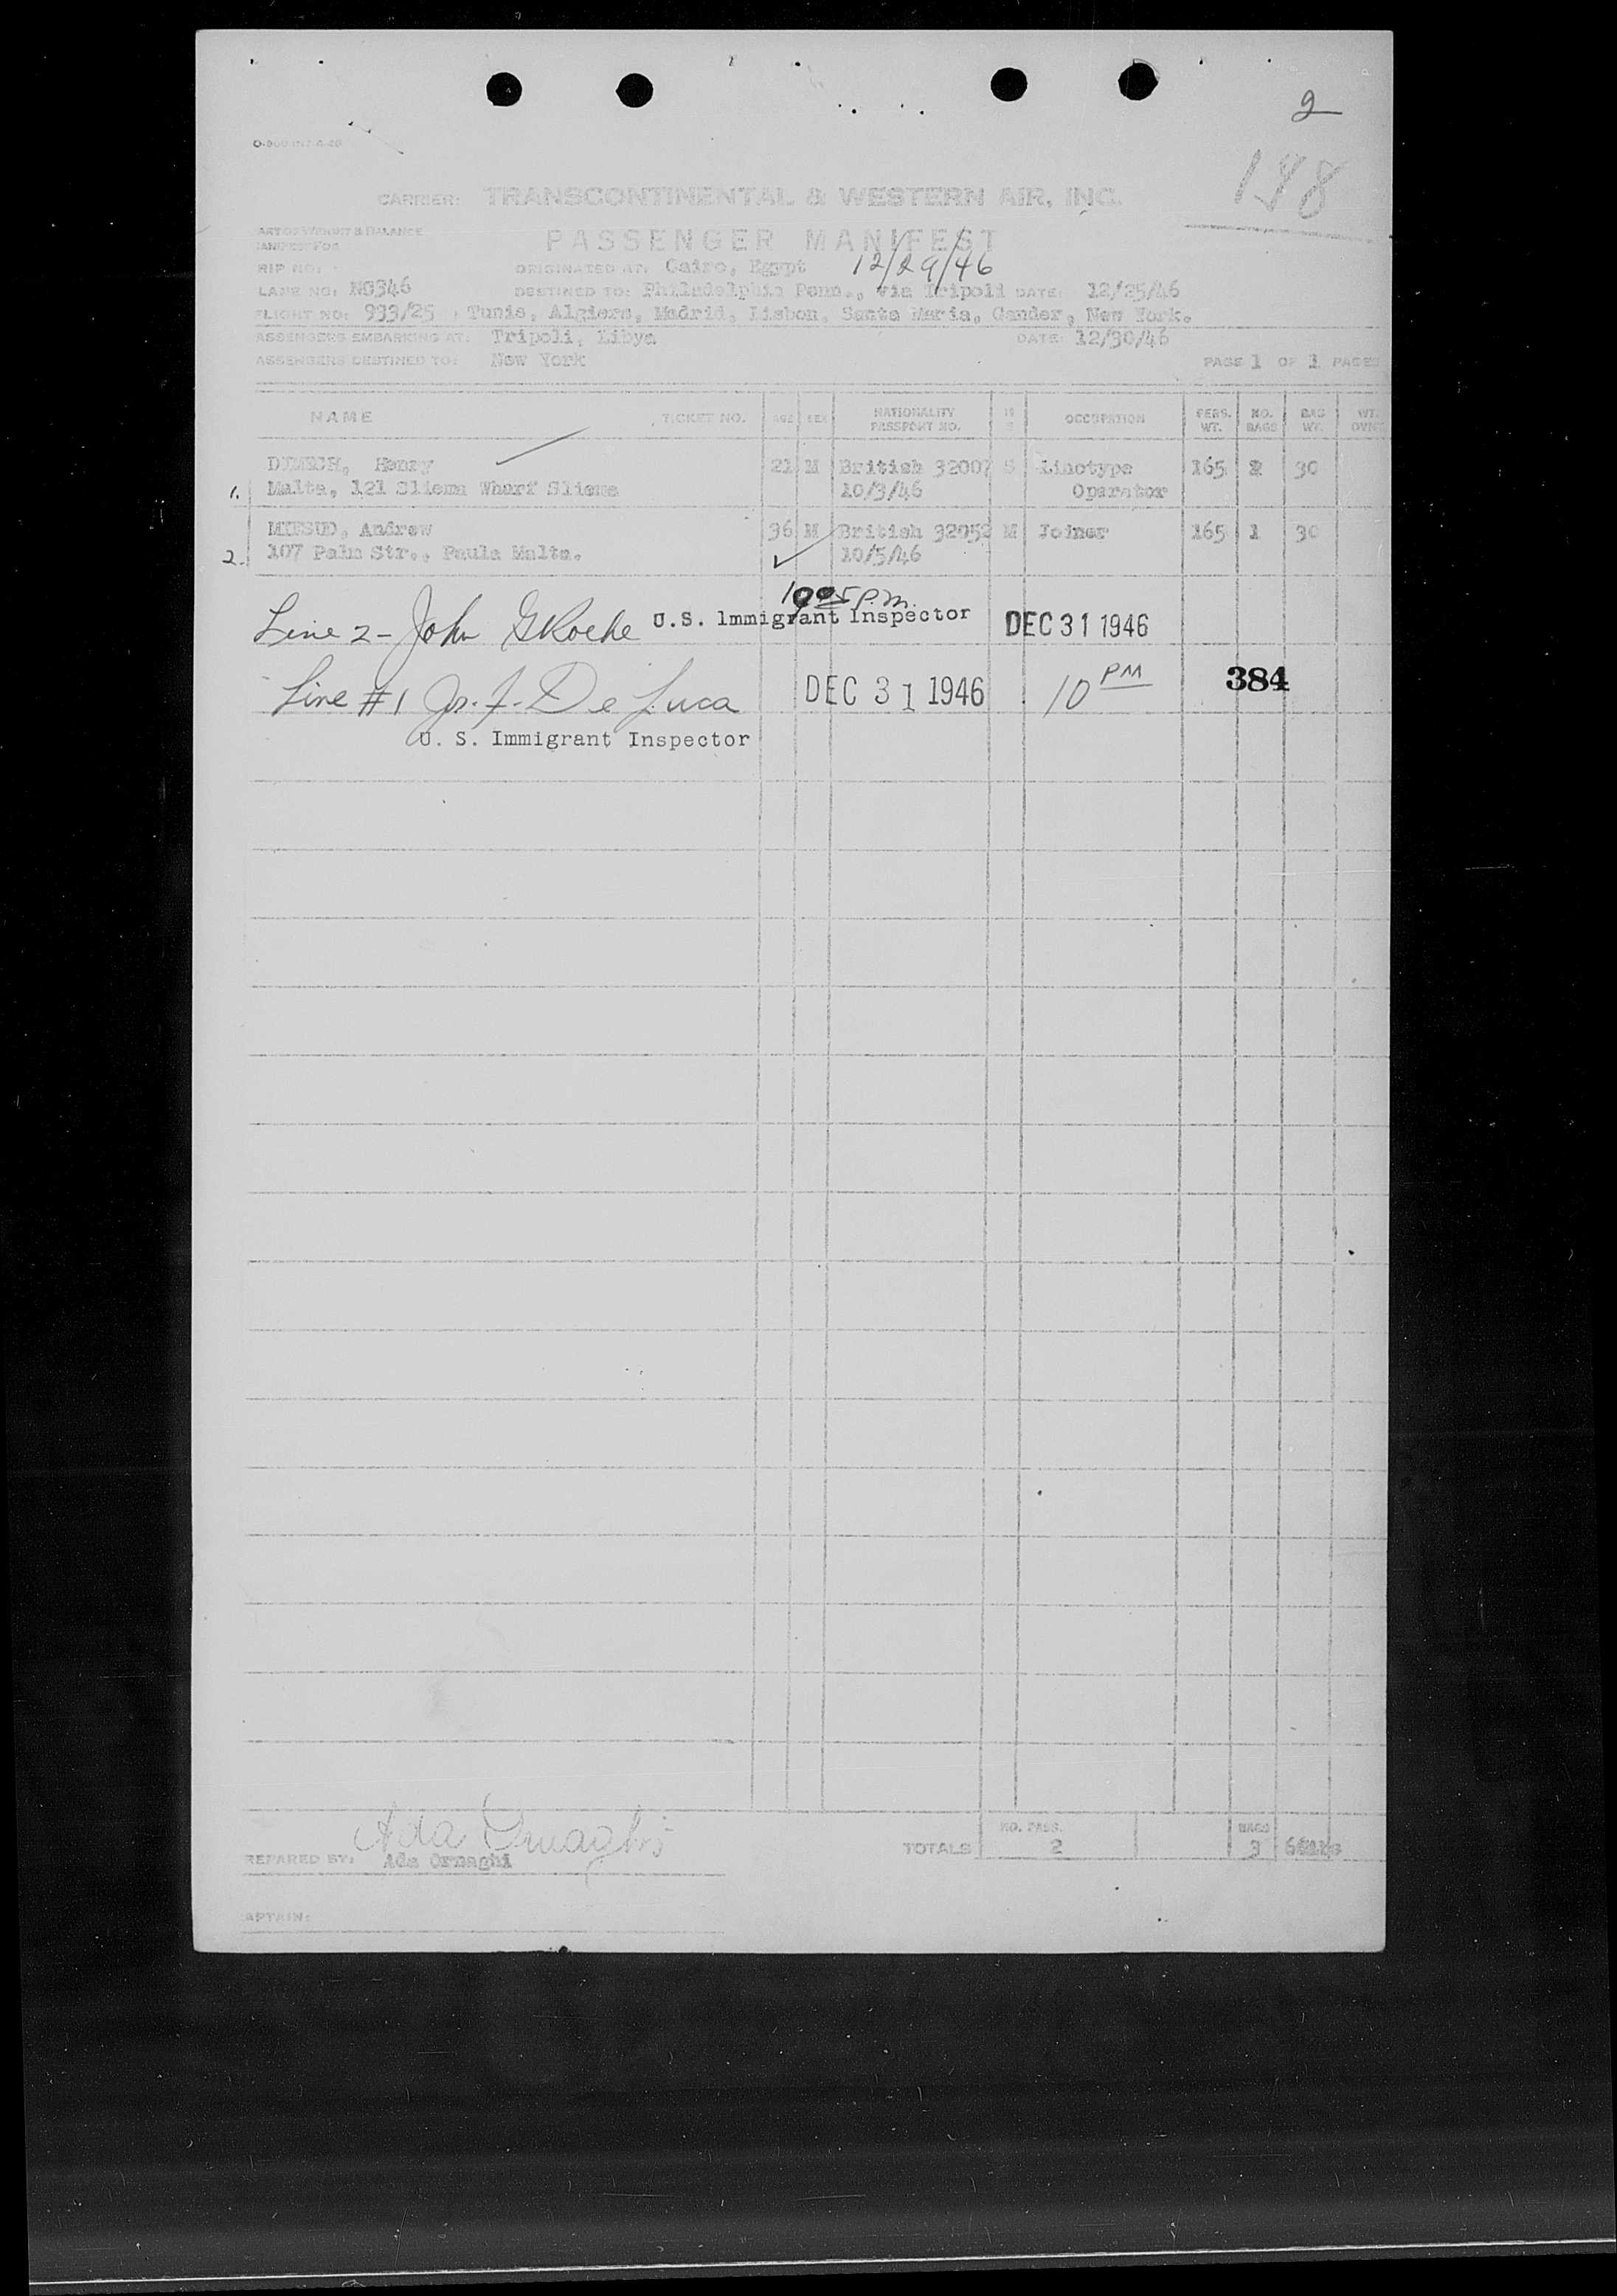 2
188
CARRIER: TRANSCONTINENTAL & WESTERN AIR, INC.
ART OF WEIGHT & BALANCE
MANIFEST FOR
PASSENGER MANIFEST
RIP NO: ORIGINATED AT: Cairo, Egypt 12/29/46
LANE NO: NC346 DESTINED TO: Philadelphia Penn., via Tripoli DATE: 12/25/46
FLIGHT NO: 933/25 , Tunis, Algiers, Madrid, Lisbon, Santa Maria, Gander, New York.
ASSENGERS EMBARKING AT: Tripoli, Libya DATE: 12/30/46
ASSENGERS DESTINED TO: New York PAGE 1 OF 1 PAGES
NAME TICKET NO. AGE SEX NATIONALITY PASSPORT NO. OCCUPATION PERS. WT. NO. BAGS BAG WT. WT.
DIMECH, Henry 21 M British 32007 S Linotype 165 2 30
1. Malta, 121 Sliema Wharf Sliema 10/3/46 Operator
MIFSUD, Andrew 36 M British 32052 M Joiner 165 1 30
2. 107 Palm Str., Paula Malta. 10/5/46
1005 P.M.
Line 2 - John G Roche U.S. Immigrant Inspector DEC 31 1946
Line #1 Jos. F. De Luca DEC 31 1946 10 PM 384
U. S. Immigrant Inspector
Ada Ornaghi
NO. PASS. BAGS
TOTALS 2 3
REPARED BY: Ada Ornaghi
APTAIN: